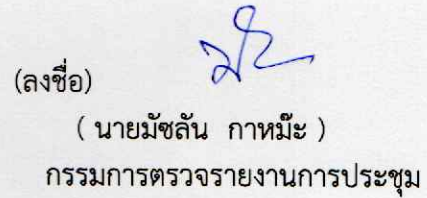 (ลงชื่อ)
( นายมัซลัน กาหม๊ะ )
กรรมการตรวจรายงานการประชุม